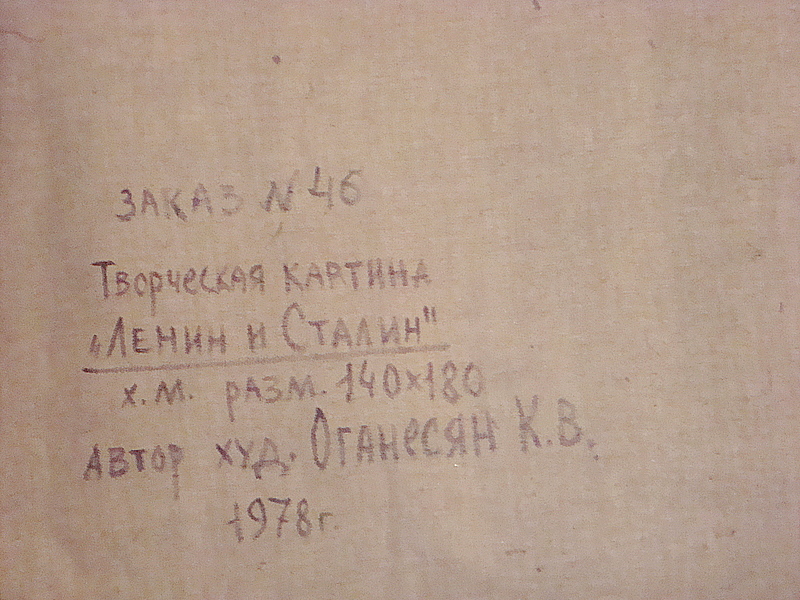 ЗАКАЗ N 46
Творческая картина
„Ленин и Сталин"
х.м. разм. 140×180
Автор худ. Оганесян К.В.
1978г.